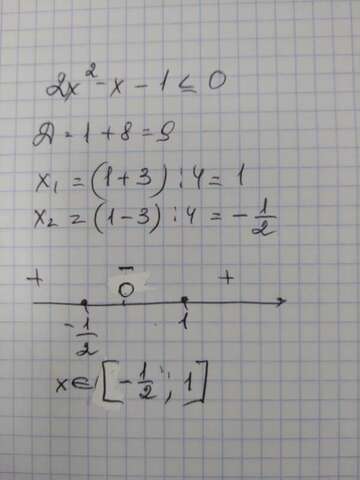 2x² - x - 1 ≤ 0
D = 1 + 8 = 9
x₁ = (1 + 3) : 4 = 1
x₂ = (1 - 3) : 4 = - 1/2
+ - +
0
- 1/2 1
x ∈ [- 1/2 ; 1]